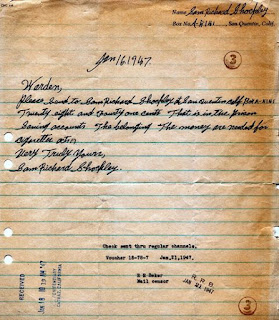 Name Sam Richard Shockley
Box No. A-K1N1, San Quentin, Calif.
3
Jan 16 1947.
Warden,
Please send to Sam Richard Shockley San Quentin Calif Box A-K1N1
Twenty eight and twenty one cents. That is in the Prison
Saving accounts. The belonging. The money are needed for
cigarettes
Very Truly Yours,
Sam Richard Shockley.
Check sent thru regular channels.
Voucher 18-78-7 Jan. 21, 1947.
Mail censor
R. R. B.
JAN 21 1947
RECEIVED
JAN 18
3